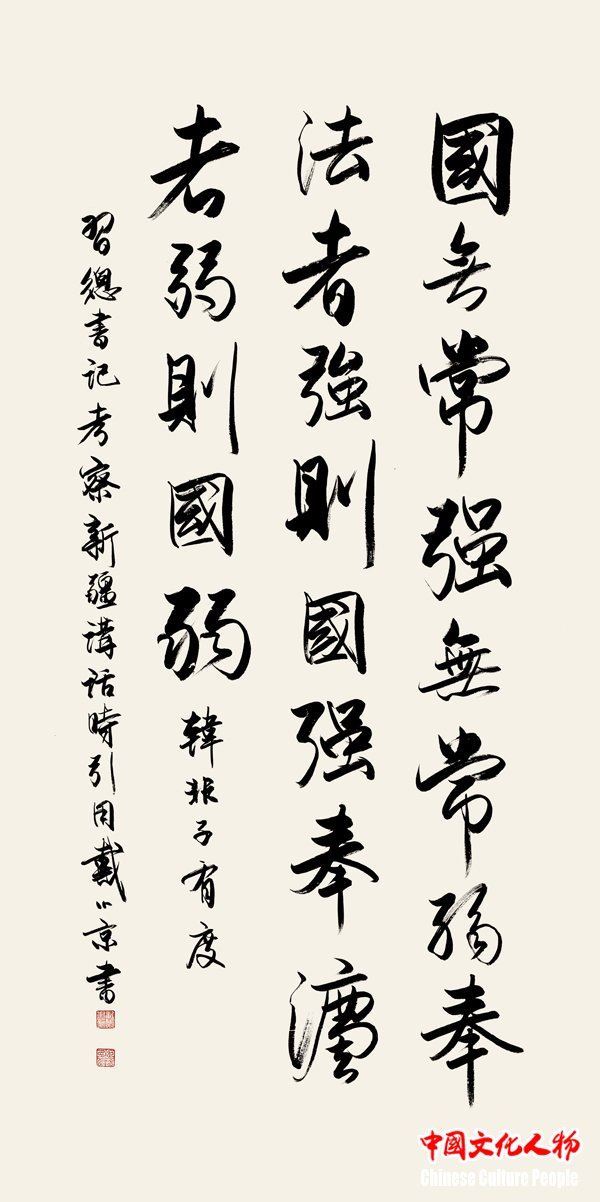 國无常强無常弱奉
法者強則國强奉灋
者弱則國弱 韓非子有度
習總書記考察新疆講話時引用戴小京書
中國文化人物
Chinese Culture People